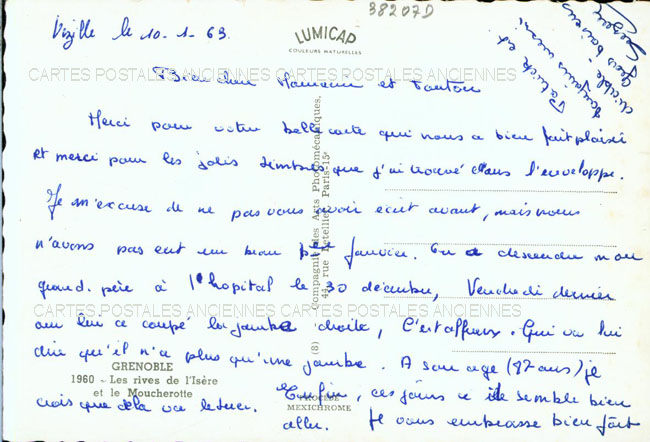 38207D
Vizille le 10-1-69.
LUMICAP
COULEURS NATURELLES
CARTES POSTALES ANCIENNES CARTES POSTALES ANCIENNES
Bien cher Maman et Tonton
Merci pour votre belle carte qui nous a bien fait plaisir
et merci pour les jolis timbres que j'ai trouvé dans l'enveloppe.
Je m'excuse de ne pas vous avoir écrit avant, mais nous
n'avons pas eut un beau 1er Janvier. On a descendu mon
grand-père à l'hopital le 30 décembre, Vendredi dernier
CARTES POSTALES ANCIENNES CARTES POSTALES ANCIENNES
on lui a coupé la jambe droite, C'est affreux. Qui va lui
dire qu'il n'a plus qu'une jambe. A son age (87 ans) je
crois que cela va le tuer. Enfin, ces jours ci il semble bien
aller. Je vous embrasse bien fort
Patrick est
toujours aussi
gros baisers
Compagnie des Arts Photomécaniques,
44, rue Letellier, Paris-15e
(8)
GRENOBLE
1960 - Les rives de l'Isère
et le Moucherotte
PROCÉDÉ
MEXICHROME